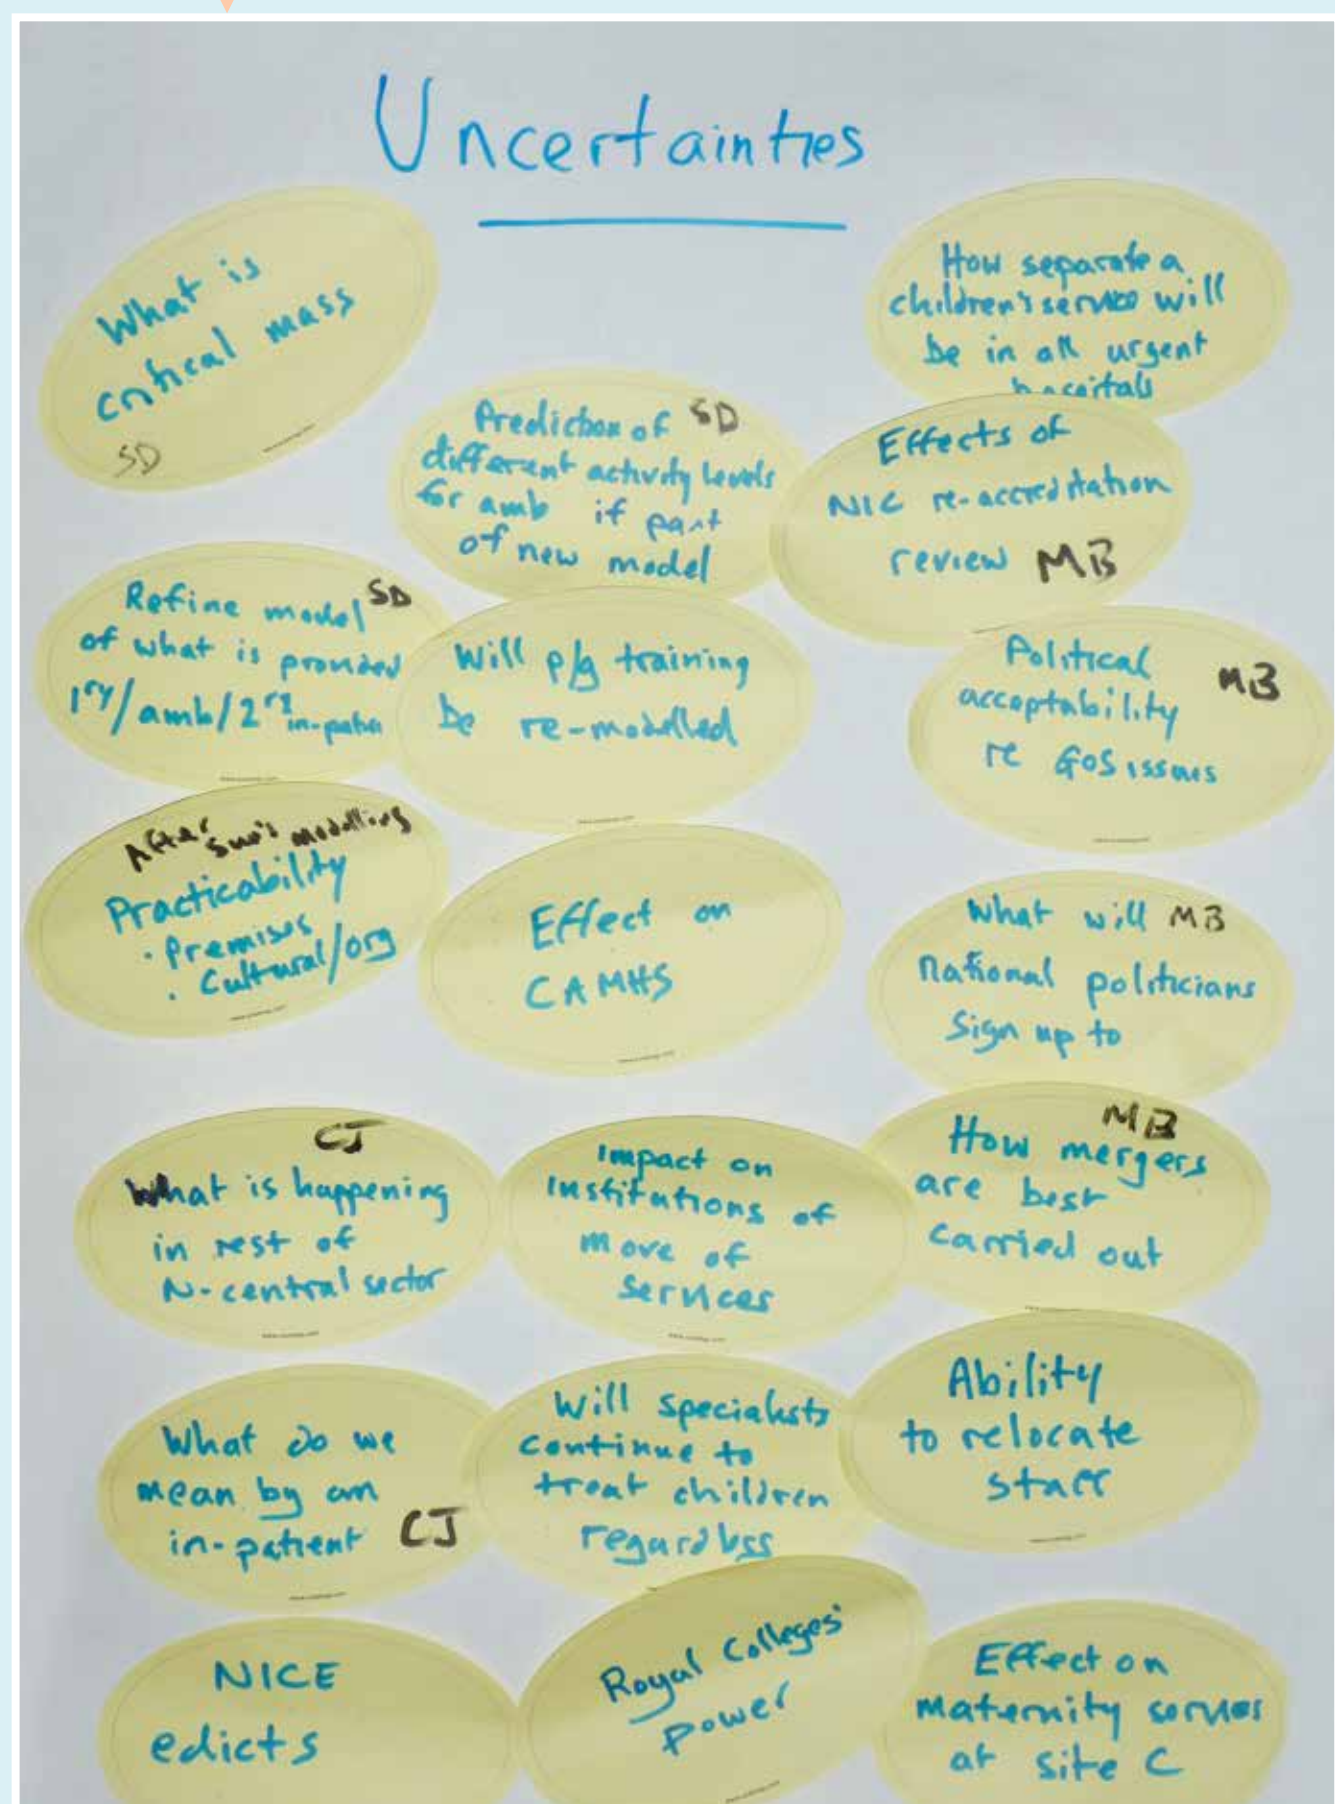 Uncertainties
What is
critical mass
SD
How separate a
children's service will
be in all urgent
hospitals
Prediction of SD
different activity levels
for amb if part
of new model
Effects of
NIC re-accreditation
review MB
Refine model SD
of what is provided
1ry/amb/2ry in-patien
Will p/g training
be re-modelled
Political MB
acceptability
re GOS issues
After Sue's modelling
Practicability
· Premises
· Cultural/org
Effect on
CAMHS
What will MB
national politicians
sign up to
CJ
What is happening
in rest of
N-central sector
Impact on
institutions of
move of
services
MB
How mergers
are best
carried out
What do we
mean by an
in-patient CJ
Will specialists
continue to
treat children
regardless
Ability
to relocate
staff
NICE
edicts
Royal Colleges'
power
Effect on
maternity services
at site C